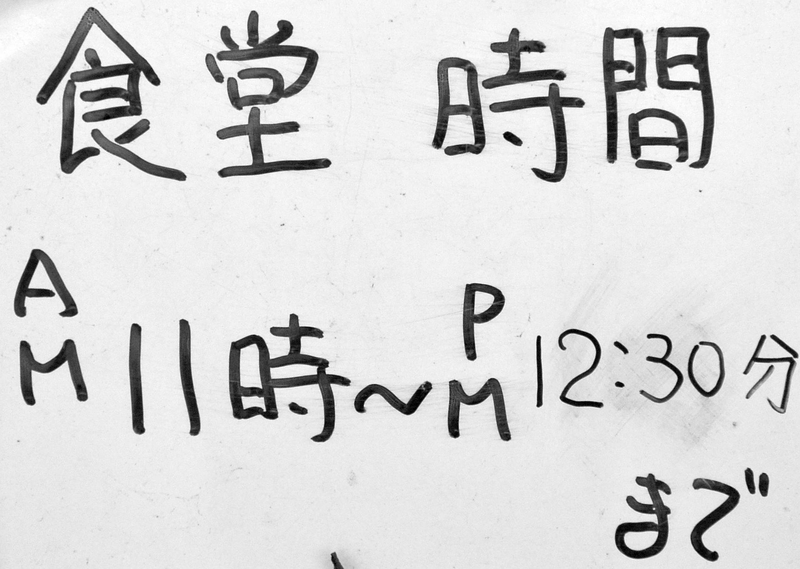 食堂 時間
AM 11時~PM 12:30分
まで